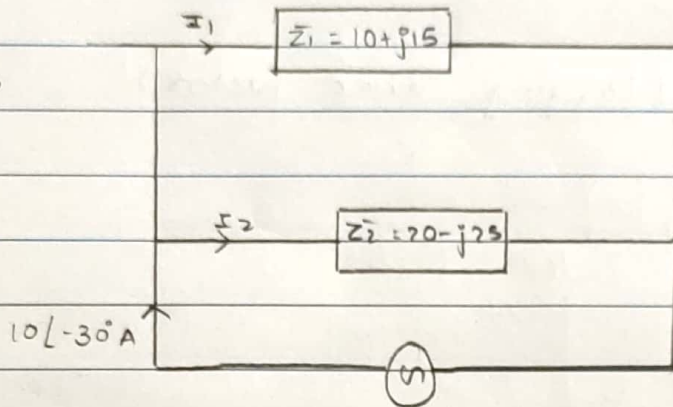 I1
Z̄1 = 10+j15
I2
Z̄2 = 20-j25
10∠-30°A
S